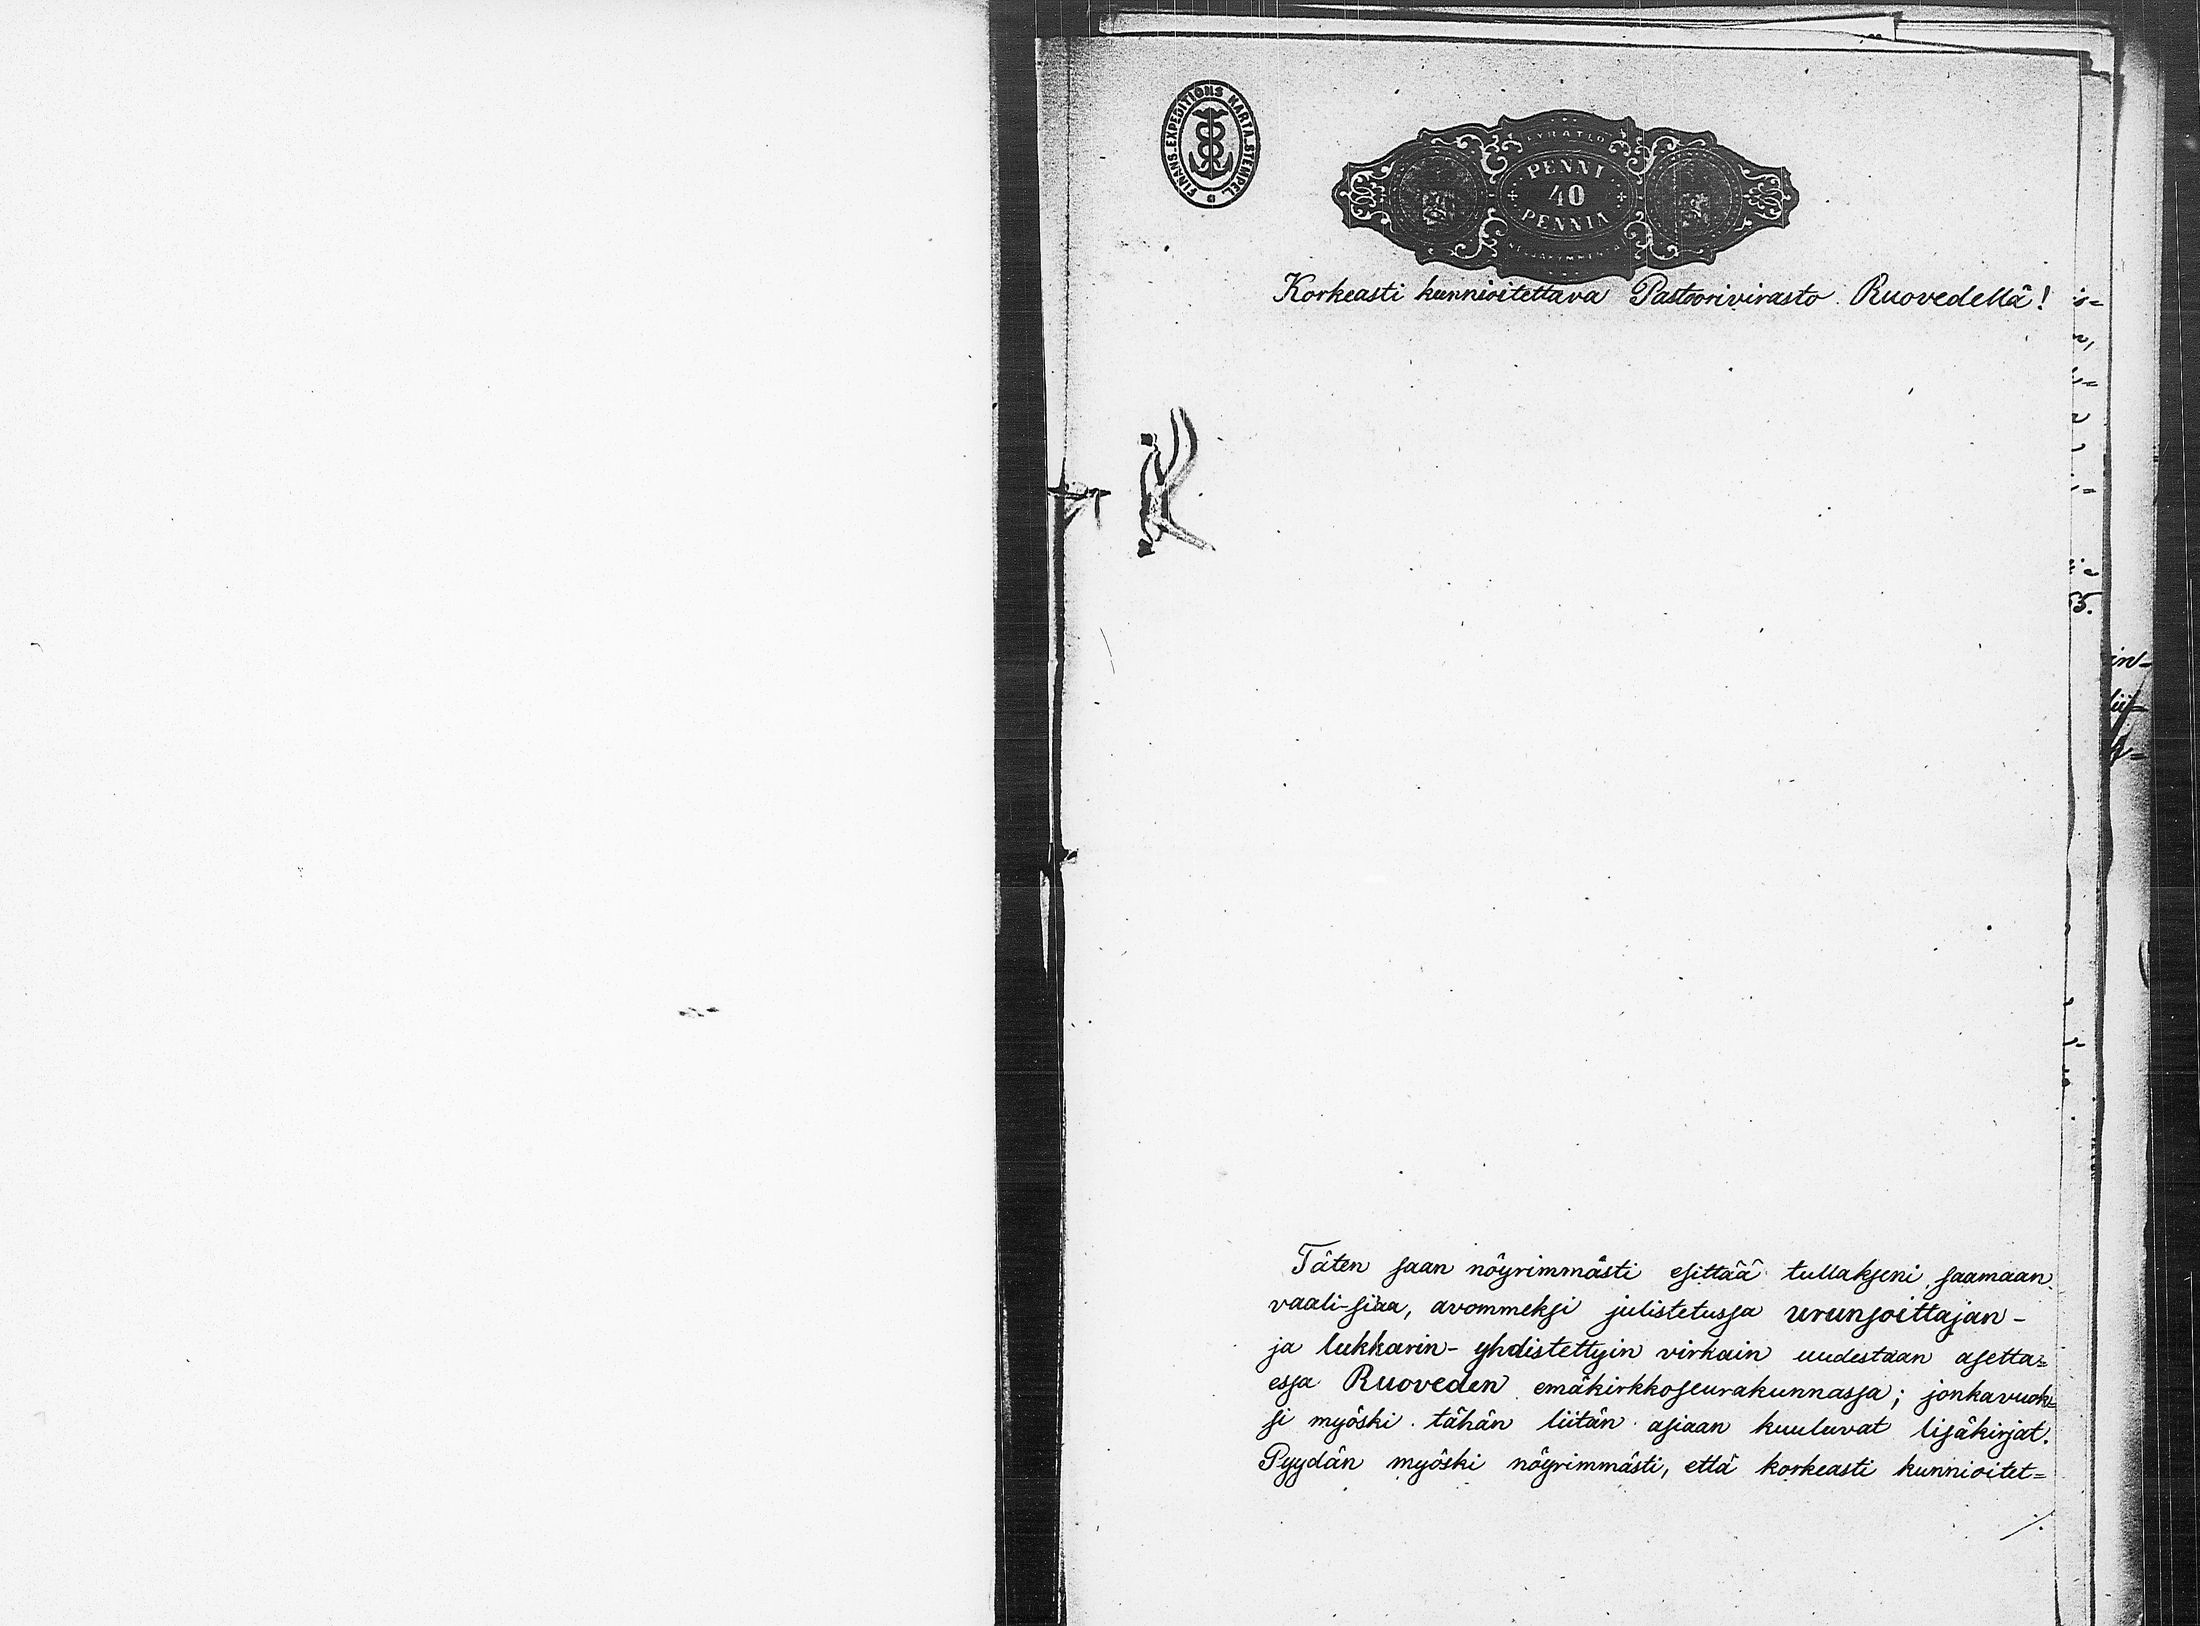 FINANS.EXPEDITIONS KARTA.STEMPEL
FYRATIO
PENNI
40
PENNIA
Korkeasti kunnioitettava Pastoorivirasto Ruovedellä!
Täten saan nöyrimmästi esittää tullakseni saamaan
vaali-siaa, avommeksi julistetussa urunsoittajan-
ja lukkarin- yhdistettyin virkain uudestaan asetta=
essa Ruoveden emäkirkkoseurakunnassa; jonkavuok=
si myöski tähän liitän asiaan kuuluvat lisäkirjat.
Pyydän myöski nöyrimmästi, että korkeasti kunnioitet=
./.